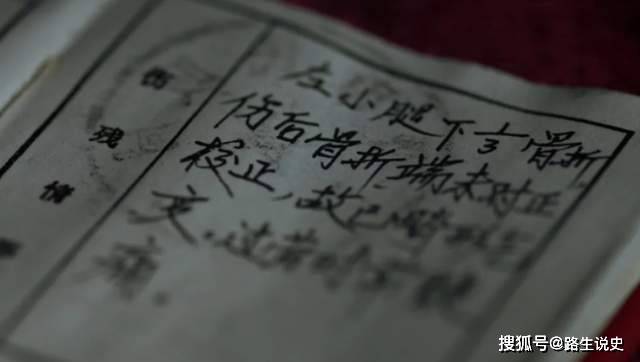 伤残情
左小腿下1/3骨折,
伤后骨折端未对正
校正,故已畸形
变.过劳时
痛.
搜狐号@路生说史